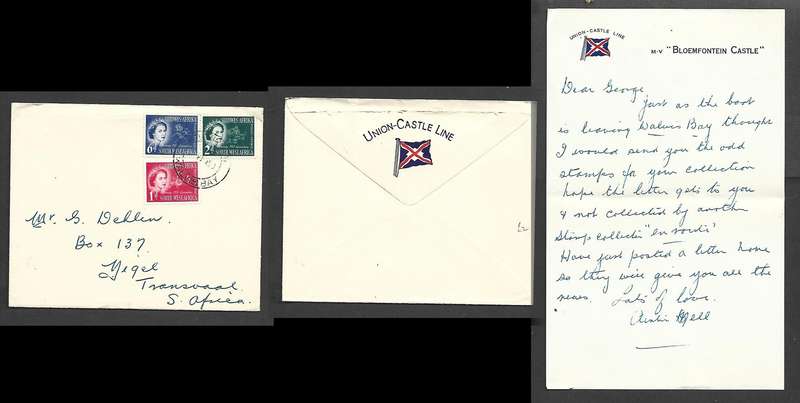 SUIDWES AFRIKA
SOUTH WEST AFRICA
6D
SUIDWES AFRIKA
SOUTH WEST AFRICA
2D
SOUTH WEST AFRICA
1D
BAY
Mr. G.
Box 137.
Transvaal
S. Africa.
UNION-CASTLE LINE
UNION-CASTLE LINE
M·V "BLOEMFONTEIN CASTLE"
Dear George
just as the boat
is leaving Walvis Bay thought
I would send you the odd
stamps for your collection
hope the letter gets to you
& not collected by another
Stamp collector "en route"
Have just posted a letter home
so they will give you all the
news. Lots of love.